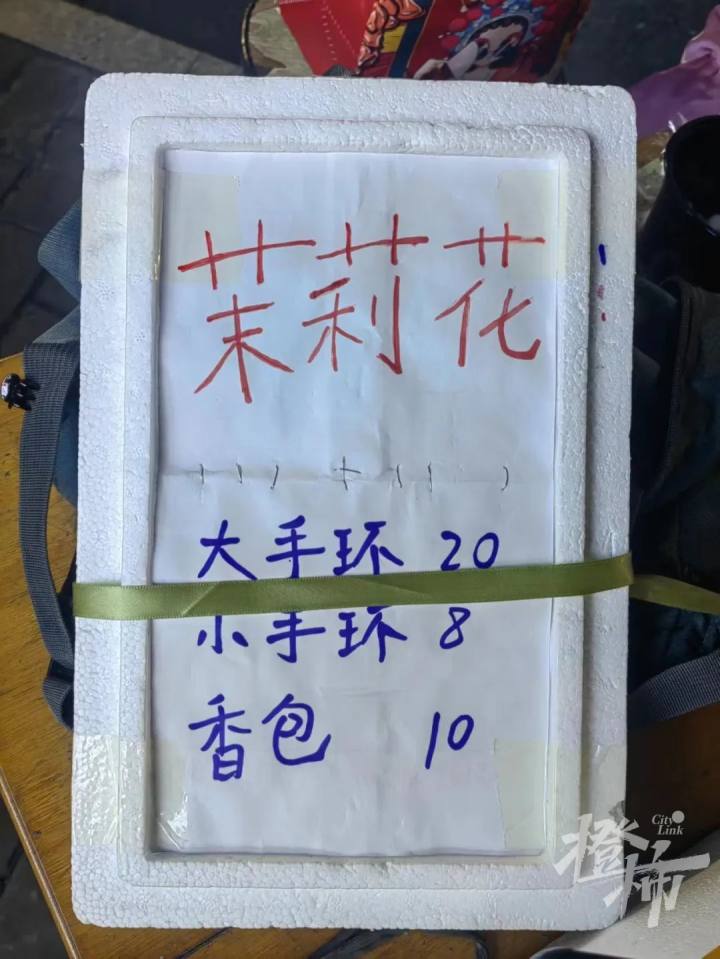 茉莉花
大手环 20
小手环 8
香包 10
City Link
橙柿